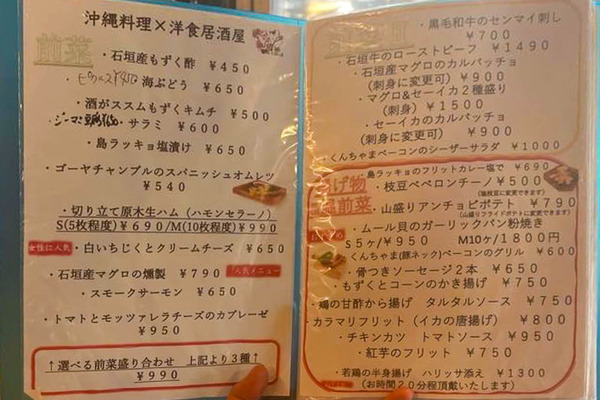 沖縄料理×洋食居酒屋
前菜
・石垣産もずく酢 ¥450
海ぶどう ¥650
・酒がススムもずくキムチ ¥500
・サラミ ¥600
・島ラッキョ塩漬け ¥650
・ゴーヤチャンプルのスパニッシュオムレツ
¥540
・切り立て原木生ハム（ハモンセラーノ）
S(5枚程度)¥690/M(10枚程度)¥990
女性に人気
・白いちじくとクリームチーズ ¥650
・石垣産マグロの燻製 ¥790
人気メニュー
・スモークサーモン ¥650
・トマトとモッツァレラチーズのカプレーゼ
¥950
↑選べる前菜盛り合わせ 上記より3種↑
¥990
・黒毛和牛のセンマイ刺し
¥700
・石垣牛のローストビーフ ¥1490
・石垣産マグロのカルパッチョ
(刺身に変更可) ¥900
・マグロ&セーイカ2種盛り
(刺身) ¥1500
・セーイカのカルパッチョ
(刺身に変更可) ¥900
・くんちゃまベーコンのシーザーサラダ ¥1000
・島ラッキョのフリットカレー塩で ¥690
揚げ物
前菜
・枝豆ペペロンチーノ ¥500
(塩枝豆に変更できます)
・山盛りアンチョビポテト ¥790
(山盛りフライドポテトに変更できます)
・ムール貝のガーリックパン粉焼き
S5ヶ/¥950 M10ヶ/1800円
・くんちゃま(豚ネック)ベーコンのグリル ¥600
・骨つきソーセージ2本 ¥650
・もずくとコーンのかき揚げ ¥750
・鶏の甘酢から揚げ タルタルソース ¥750
・カラマリフリット（イカの唐揚げ） ¥800
・チキンカツ トマトソース ¥950
・紅芋のフリット ¥750
・若鶏の半身揚げ ハリッサ添え ¥1300
（お時間20分程頂戴いたします）